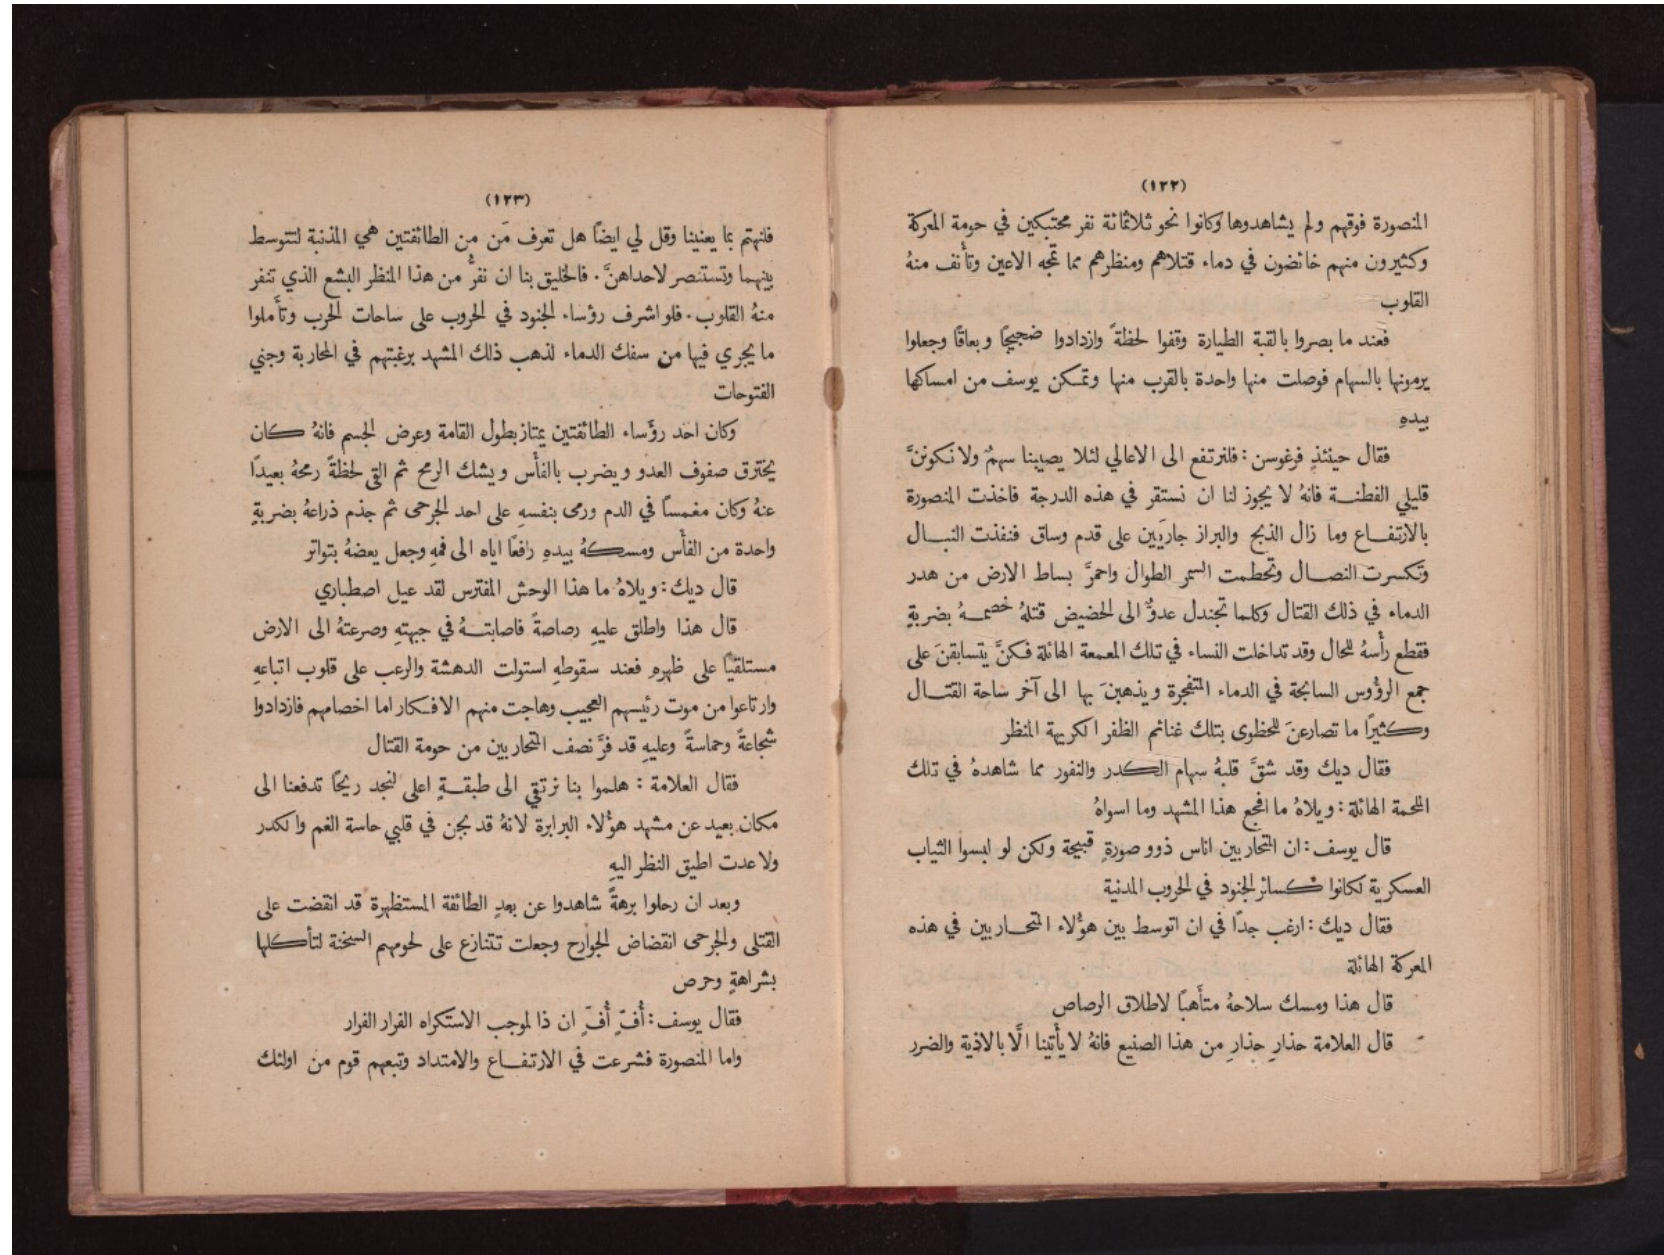 (١٢٢)
المنصورة فوقهم ولم يشاهدوها وكانوا نحو ثلاثمائة نفر محتبكين في حومة المعركة
وكثيرون منهم خائضون في دماء قتلاهم ومنظرهم مما تمجه الاعين وتأنف منهُ
القلوب
فعند ما بصروا بالقبة الطيارة وقفوا لحظةً وازدادوا ضجيجًا وبعاقًا وجعلوا
يرمونها بالسهام فوصلت منها واحدة بالقرب منها وتمكن يوسف من امساكها
بيدهِ
فقال حينئذٍ فرغوسن : فلنرتفع الى الاعالي لئلا يصيبنا سهمٌ ولا نكوننَّ
قليلي الفطنة فانهُ لا يجوز لنا ان نستقر في هذه الدرجة فاخذت المنصورة
بالارتفاع وما زال الذبح والبراز جاريَين على قدم وساق فنفذت النبال
وتكسرت النصال وتحطمت السمر الطوال واحمرَّ بساط الارض من هدر
الدماء في ذلك القتال وكلما تجندل عدوٌّ الى الحضيض قتلهُ خصمهُ بضربةٍ
فقطع رأسهُ للحال وقد تداخلت النساء في تلك المعمعة الهائلة فكنَّ يتسابقنَ على
جمع الرؤوس السابحة في الدماء المتفجرة ويذهبنَ بها الى آخر ساحة القتال
وكثيرًا ما تصارعنَ للحظوى بتلك غنائم الظفر الكريهة المنظر
فقال ديك وقد شقَّ قلبهُ سهام الكدر والنفور مما شاهدهُ في تلك
الملحمة الهائلة : ويلاهُ ما افجع هذا المشهد وما اسواهُ
قال يوسف : ان المتحاربين اناس ذوو صورةٍ قبيحة ولكن لو لبسوا الثياب
العسكرية لكانوا كسائر الجنود في الحروب المدنية
فقال ديك : ارغب جدًّا في ان اتوسط بين هؤلاء المتحاربين في هذه
المعركة الهائلة
قال هذا ومسك سلاحهُ متأهبًا لاطلاق الرصاص
قال العلامة حذارِ حذارِ من هذا الصنيع فانهُ لا يأتينا الَّا بالاذية والضرر
(١٢٣)
فلنهتم بما يعنينا وقل لي ايضًا هل تعرف مَن من الطائفتين هي المذنبة لتتوسط
بينهما وتستنصر لاحداهنَّ . فالخليق بنا ان نفرَّ من هذا المنظر البشع الذي تنفر
منهُ القلوب . فلو اشرف رؤساء الجنود في الحروب على ساحات الحرب وتأملوا
ما يجري فيها من سفك الدماء لذهب ذلك المشهد برغبتهم في المحاربة وجني
الفتوحات
وكان احد رؤساء الطائفتين يمتاز بطول القامة وعرض الجسم فانهُ كان
يخترق صفوف العدو ويضرب بالفأس ويشك الرمح ثم القى لحظةً رمحهُ بعيدًا
عنهُ وكان مغمسًا في الدم ورمى بنفسهِ على احد الجرحى ثم جذم ذراعهُ بضربةٍ
واحدة من الفأس ومسكهُ بيدهِ رافعًا اياه الى فمهِ وجعل يعضهُ بتواتر
قال ديك : ويلاهُ ما هذا الوحش المفترس لقد عيل اصطباري
قال هذا واطلق عليهِ رصاصةً فاصابتهُ في جبهتهِ وصرعتهُ الى الارض
مستلقيًا على ظهرهِ فعند سقوطهِ استولت الدهشة والرعب على قلوب اتباعهِ
وارتاعوا من موت رئيسهم العجيب وهاجت منهم الافكار اما اخصامهم فازدادوا
شجاعةً وحماسةً وعليهِ قد فرَّ نصف المتحاربين من حومة القتال
فقال العلامة : هلموا بنا نرتقي الى طبقةٍ اعلى لنجد ريحًا تدفعنا الى
مكان بعيد عن مشهد هؤلاء البرابرة لانهُ قد يجن في قلبي حاسة الغم والكدر
ولا عدت اطيق النظر اليهِ
وبعد ان رحلوا برهةً شاهدوا عن بعدٍ الطائفة المستظهرة قد انقضت على
القتلى والجرحى انقضاض الجوارح وجعلت تتنازع على لحومهم السخنة لتأكلها
بشراهةٍ وحرص
فقال يوسف : أُفٍّ أُفٍّ ان ذا لموجب الاستكراه الفرار الفرار
واما المنصورة فشرعت في الارتفاع والامتداد وتبعهم قوم من اولئك